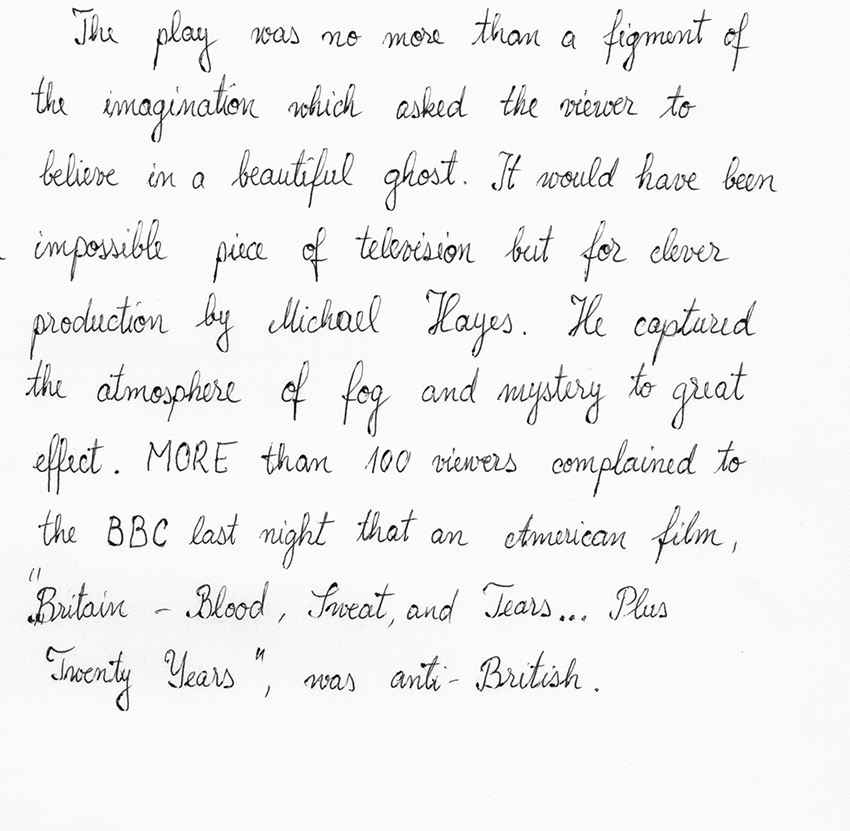 The play was no more than a figment of
the imagination which asked the viewer to
believe in a beautiful ghost. It would have been
impossible piece of television but for clever
production by Michael Hayes. He captured
the atmosphere of fog and mystery to great
effect. MORE than 100 viewers complained to
the BBC last night that an American film,
"Britain - Blood, Sweat, and Tears... Plus
Twenty Years", was anti-British.